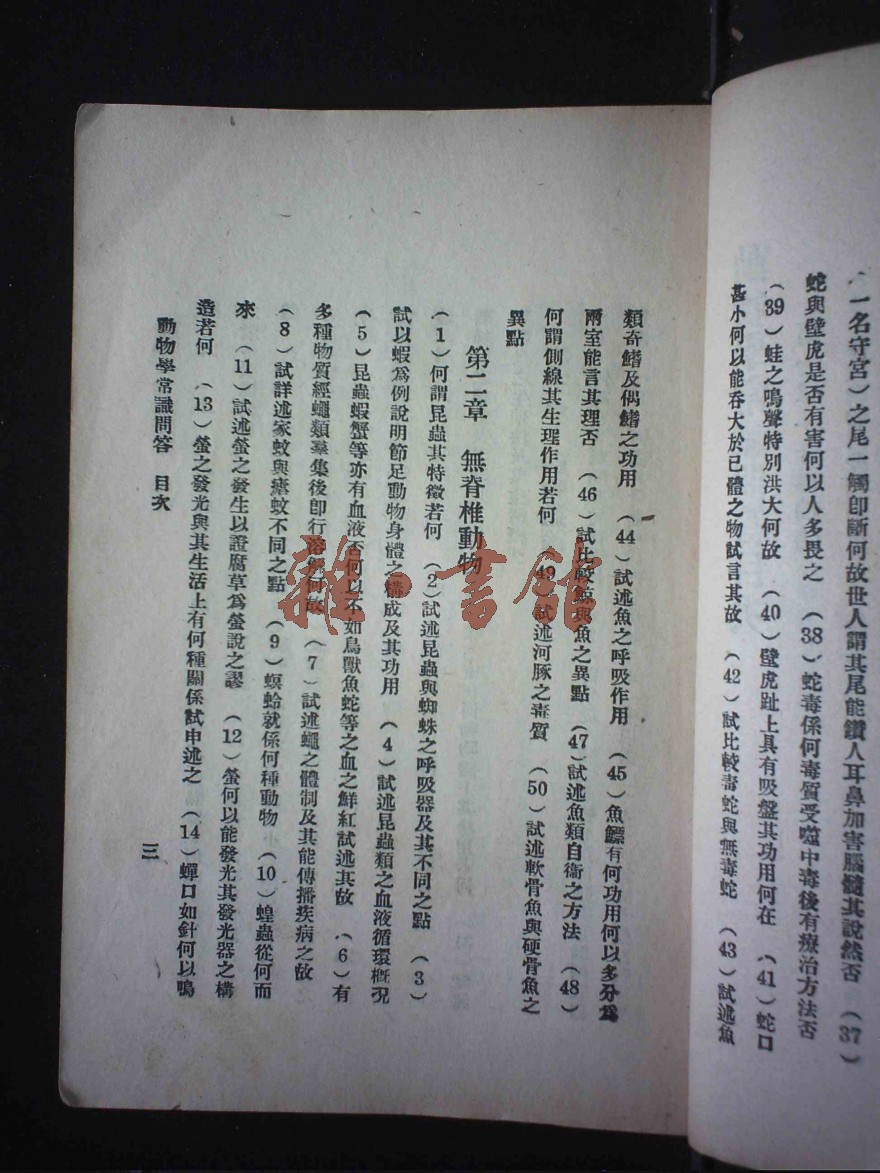 一名守宮）之尾一觸卽斷何故世人謂其尾能鑽人耳鼻加害腦髓其說然否　（37）
蛇與壁虎是否有害何以人多畏之　（38）蛇毒係何毒質受噬中毒後有療治方法否
（39）蛙之鳴聲特別洪大何故　（40）壁虎趾上具有吸盤其功用何在　（41）蛇口
甚小何以能吞大於已體之物試言其故　（42）試比較毒蛇與無毒蛇　（43）試述魚
類奇鰭及偶鰭之功用　（44）試述魚之呼吸作用　（45）魚鰾有何功用何以多分爲
兩室能言其理否　（46）試比較鯨與魚之異點　（47）試述魚類自衞之方法　（48）
何謂側線其生理作用若何　（49）試述河豚之毒質　（50）試述軟骨魚與硬骨魚之
異點
第二章　無脊椎動物
（1）何謂昆蟲其特徵若何　（2）試述昆蟲與蜘蛛之呼吸器及其不同之點　（3）
試以蝦爲例說明節足動物身體之構成及其功用　（4）試述昆蟲類之血液循環槪况
（5）昆蟲蝦蟹等亦有血液否何以不如鳥獸魚蛇等之血之鮮紅試述其故　（6）有
多種物質經蠅類羣集後卽行溶解何故　（7）試述蠅之體制及其能傳播疾病之故
（8）試詳述家蚊與瘧蚊不同之點　（9）螟蛉就係何種動物　（10）蝗蟲從何而
來　（11）試述螢之發生以證腐草爲螢說之謬　（12）螢何以能發光其發光器之構
造若何　（13）螢之發光與其生活上有何種關係試申述之　（14）蟬口如針何以鳴
動物學常識問答　目次
三
雜·書館